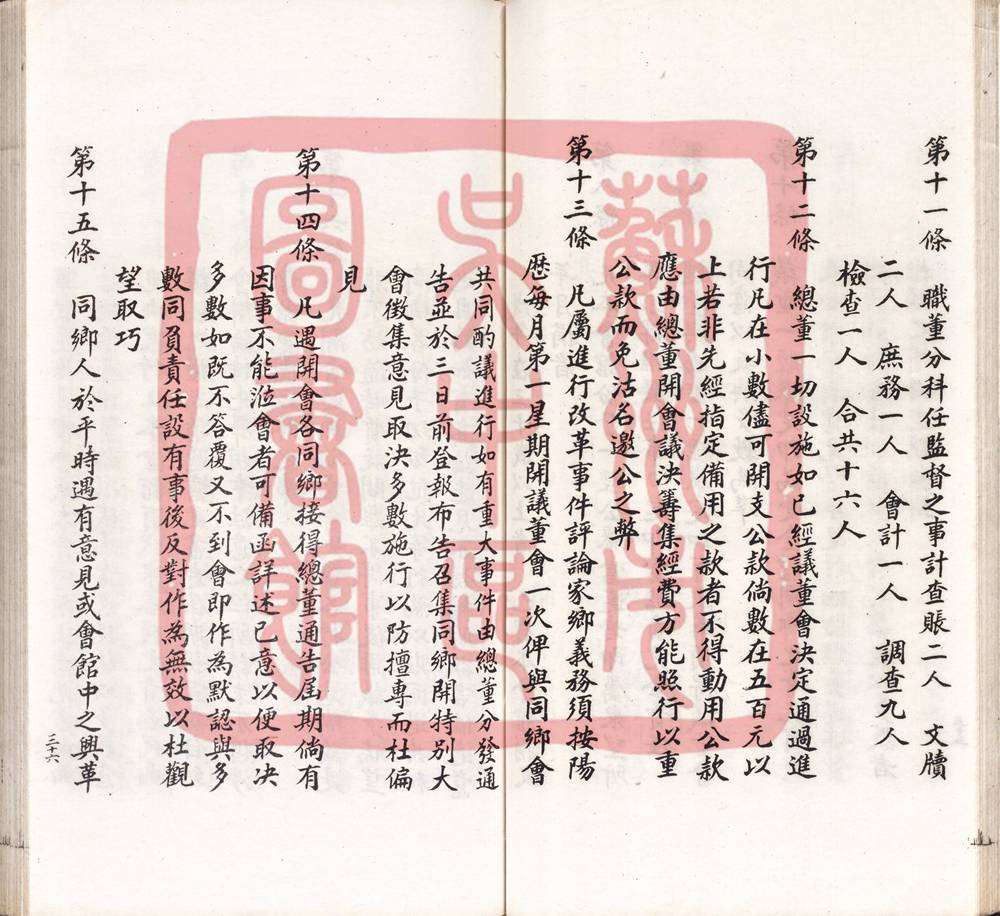 第十一條　職董分科任監督之事計查賬二人　文牘
二人　庶務一人　會計一人　調查九人
檢查一人　合共十六人
第十二條　總董一切設施如已經議董會決定通過進
行凡在小數儘可開支公款倘數在五百元以
上若非先經指定備用之款者不得動用公款
應由總董開會議決籌集經費方能照行以重
公款而免沽名邀公之弊
第十三條　凡屬進行改革事件評論家鄉義務須按陽
歷每月第一星期開議董會一次俾與同鄉會
共同酌議進行如有重大事件由總董分發通
告並於三日前登報布告召集同鄉開特別大
會徵集意見取決多數施行以防擅專而杜偏
見
第十四條　凡遇開會各同鄉接得總董通告屆期倘有
因事不能涖會者可備函詳述已意以便取決
多數如既不答覆又不到會即作為默認與多
數同負責任設有事後反對作為無效以杜觀
望取巧
第十五條　同鄉人於平時遇有意見或會館中之興革
三十六
蘇州市
吳中區
圖書館